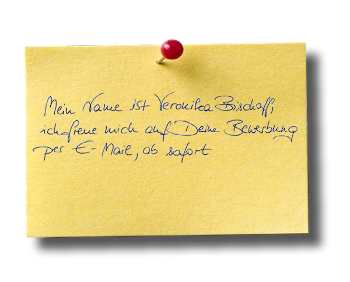 Mein Name ist Veronika Bischoff,
ich freue mich auf Deine Bewerbung
per E-Mail, ab sofort